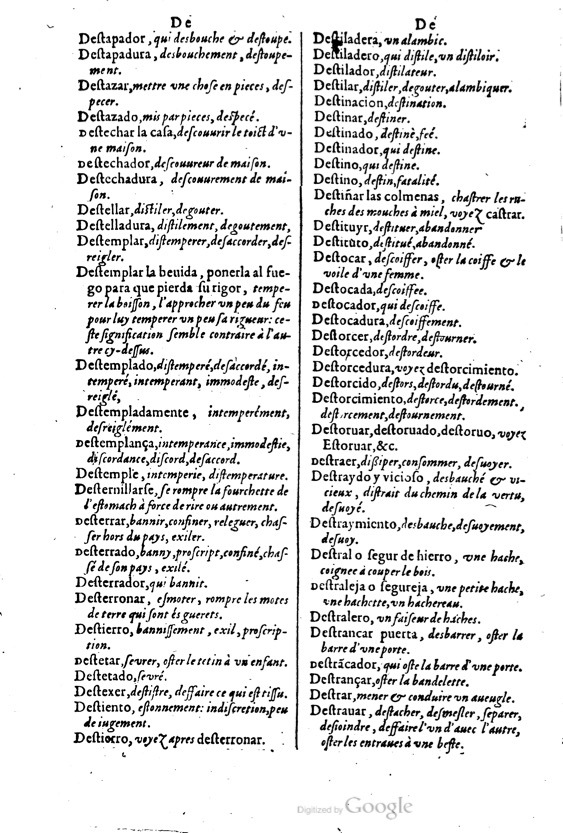 De
Destapador, qui desbouche & destoupe.
Destapadura, desbouchement, destoupe-
ment.
Destazar, mettre vne chose en pieces, des-
pecer.
Destazado, mis par pieces, despecé.
Destechar la casa, descouurir le toict d'v-
ne maison.
Destechador, descouureur de maison.
Destechadura, descouurement de mai-
son.
Destellar, distiler, degouter.
Destelladura, distilement, degoutement,
Destemplar, distemperer, desaccorder, des-
reigler.
Destemplar la beuida, ponerla al fue-
go para que pierda su rigor, tempe-
rer la boisson, l'approcher vn peu du feu
pour luy temperer vn peu sa rigueur: ce-
ste signification semble contraire à l'au-
tre cy-dessus.
Destemplado, distemperé, desaccordé, in-
temperé, intemperant, immodeste, des-
reiglé,
Destempladamente, intemperément,
desreiglément.
Destemplança, intemperance, immodestie,
discordance, discord, desaccord.
Destemple, intemperie, distemperature.
Desternillarse, se rompre la fourchette de
l'estomach à force de rire ou autrement.
Desterrar, bannir, confiner, releguer, chas-
ser hors du pays, exiler.
Desterrado, banny, proscript, confiné, chas-
sé de son pays, exilé.
Desterrador, qui bannit.
Desterronar, esmoter, rompre les motes
de terre qui sont és guerets.
Destierro, bannissement, exil, proscrip-
tion.
Destetar, sevrer, oster le tetin à vn enfant.
Destetado, sevré.
Destexer, destistre, deffaire ce qui est tissu.
Destiento, estonnement: indiscretion, peu
de iugement.
Destiorro, voyez apres desterronar.
Dé
Destiladera, vn alambic.
Destiladero, qui distile, vn distiloir.
Destilador, distilateur.
Destilar, distiler, degouter, alambiquer.
Destinacion, destination.
Destinar, destiner.
Destinado, destiné, feé.
Destinador, qui destine.
Destino, qui destine.
Destino, destin, fatalité.
Destiñar las colmenas, chastrer les ru-
ches des mouches à miel, voyez castrar.
Destituyr, destituer, abandonner
Destituto, destitué, abandonné.
Destocar, descoiffer, oster la coiffe & le
voile d'vne femme.
Destocada, descoiffee.
Destocador, qui descoiffe.
Destocadura, descoiffement.
Destorcer, destordre, destourner.
Destorcedor, destordeur.
Destorcedura, voyez destorcimiento.
Destorcido, destors, destordu, destourné.
Destorcimiento, destorce, destordement.
destorcement, destournement.
Destoruar, destoruado, destoruo, voyez
Estoruar, &c.
Destraer, dissiper, consommer, desuoyer.
Destraydo y vicioso, desbauché & vi-
cieux, distrait du chemin de la vertu,
desuoyé.
Destraymiento, desbauche, desuoyement,
desuoy.
Destral o segur de hierro, vne hache,
coignee à couper le bois.
Destraleja o segureja, vne petite hache,
vne hachette, vn hachereau.
Destralero, vn faiseur de haches.
Destrancar puerta, desbarrer, oster la
barre d'vne porte.
Destrãcador, qui oste la barre d'vne porte.
Destrançar, oster la bandelette.
Destrar, mener & conduire vn aueugle.
Destrauar, destacher, desmesler, separer,
desioindre, deffaire l'vn d'auec l'autre,
oster les entraues à vne beste.
Digitized by Google